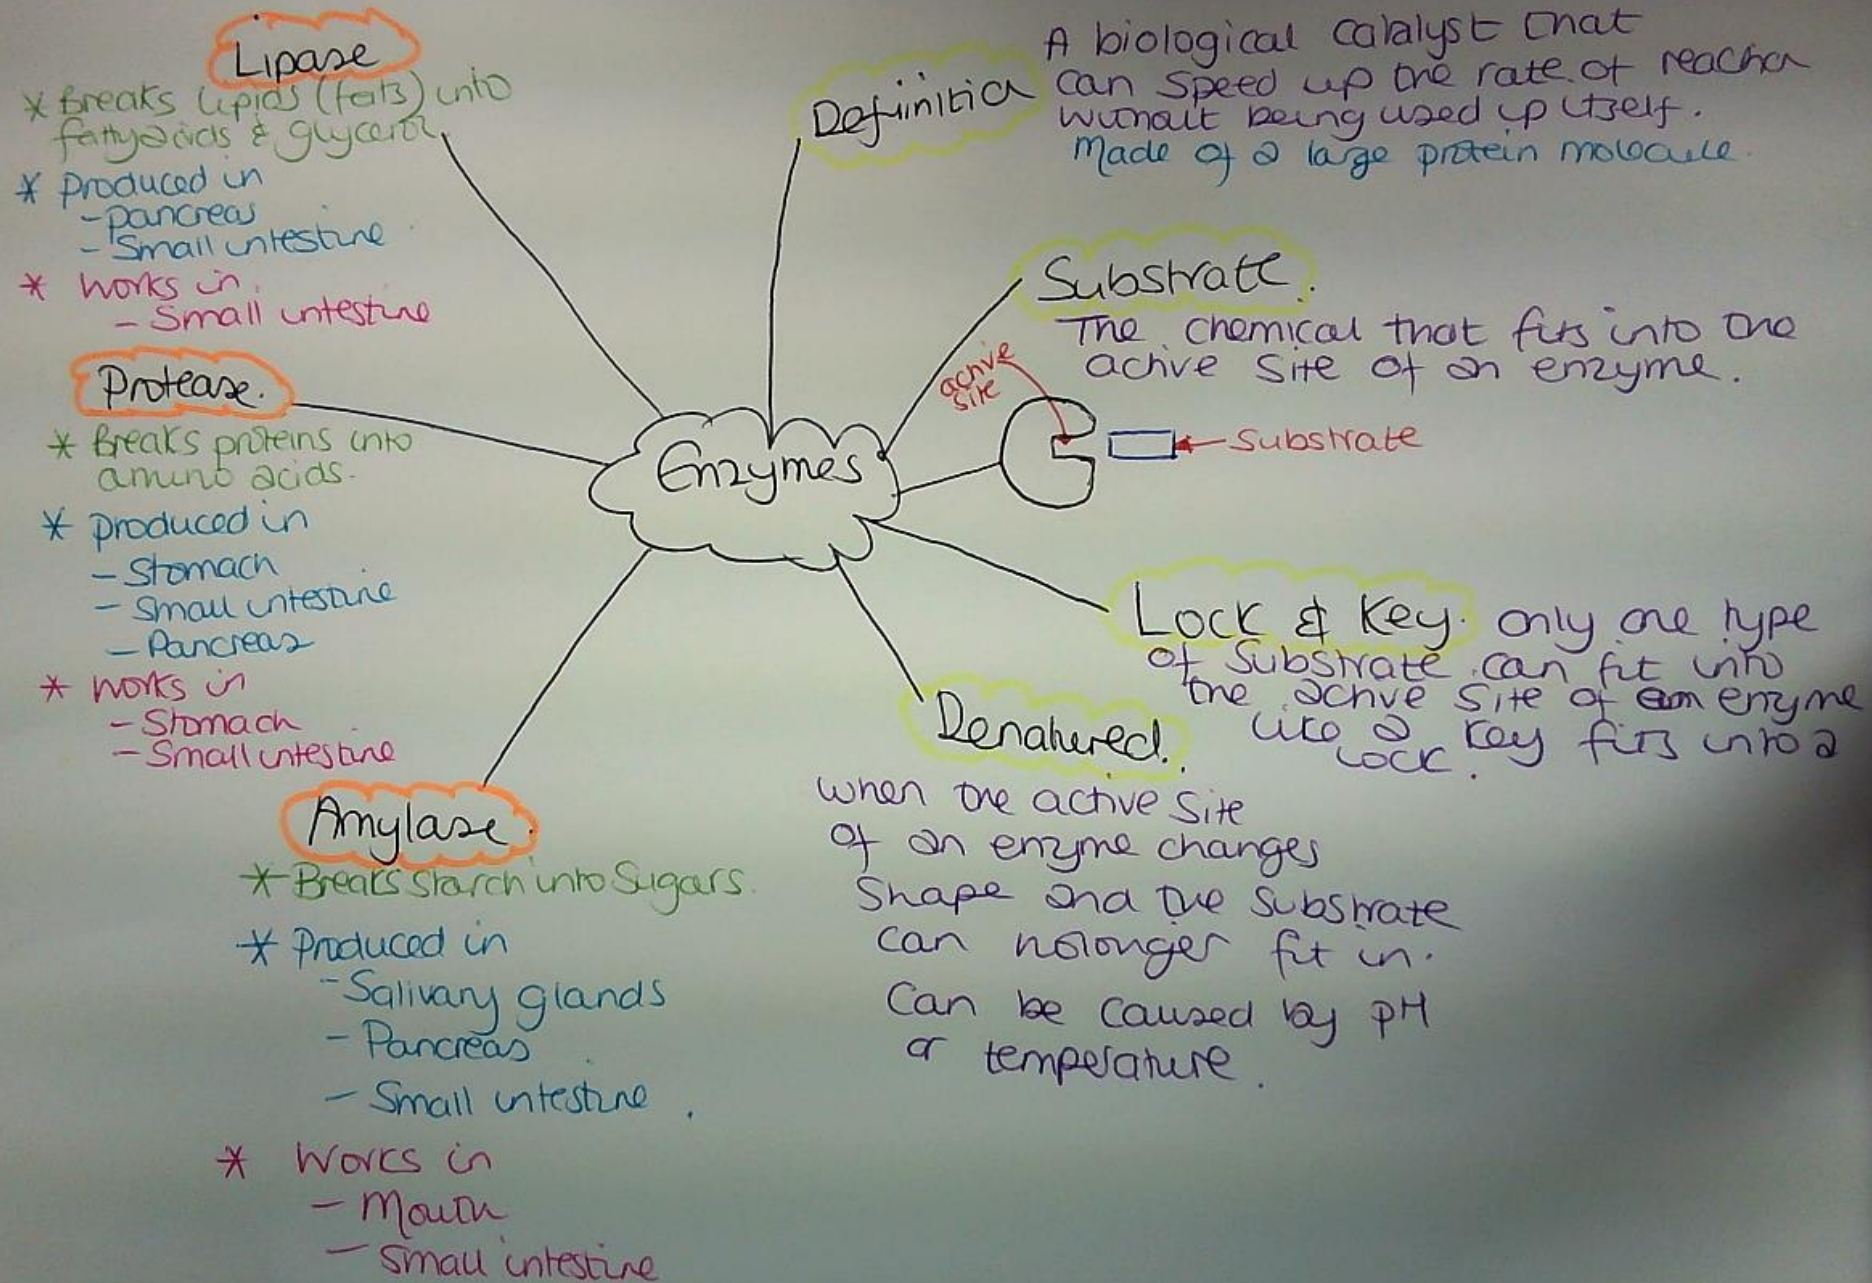 Enzymes
Lipase
* Breaks lipids (fats) into
fatty acids & glycerol
* produced in
- pancreas
- Small intestine
* works in
- Small intestine
Protease.
* Breaks proteins into
amino acids.
* produced in
- Stomach
- Small intestine
- Pancreas
* works in
- Stomach
- Small intestine
Amylase.
* Breaks starch into Sugars.
* Produced in
- Salivary glands
- Pancreas
- Small intestine.
* Works in
- Mouth
- Small intestine
Definition
A biological catalyst that
can speed up the rate of reaction
without being used up itself.
Made of a large protein molecule.
Substrate.
The chemical that fits into the
active site of an enzyme.
active
site
Substrate
Lock & Key. only one type
of substrate can fit into
the active site of an enzyme
like a key fits into a
lock.
Denatured.
when the active site
of an enzyme changes
Shape and the substrate
can nolonger fit in.
Can be caused by pH
or temperature.